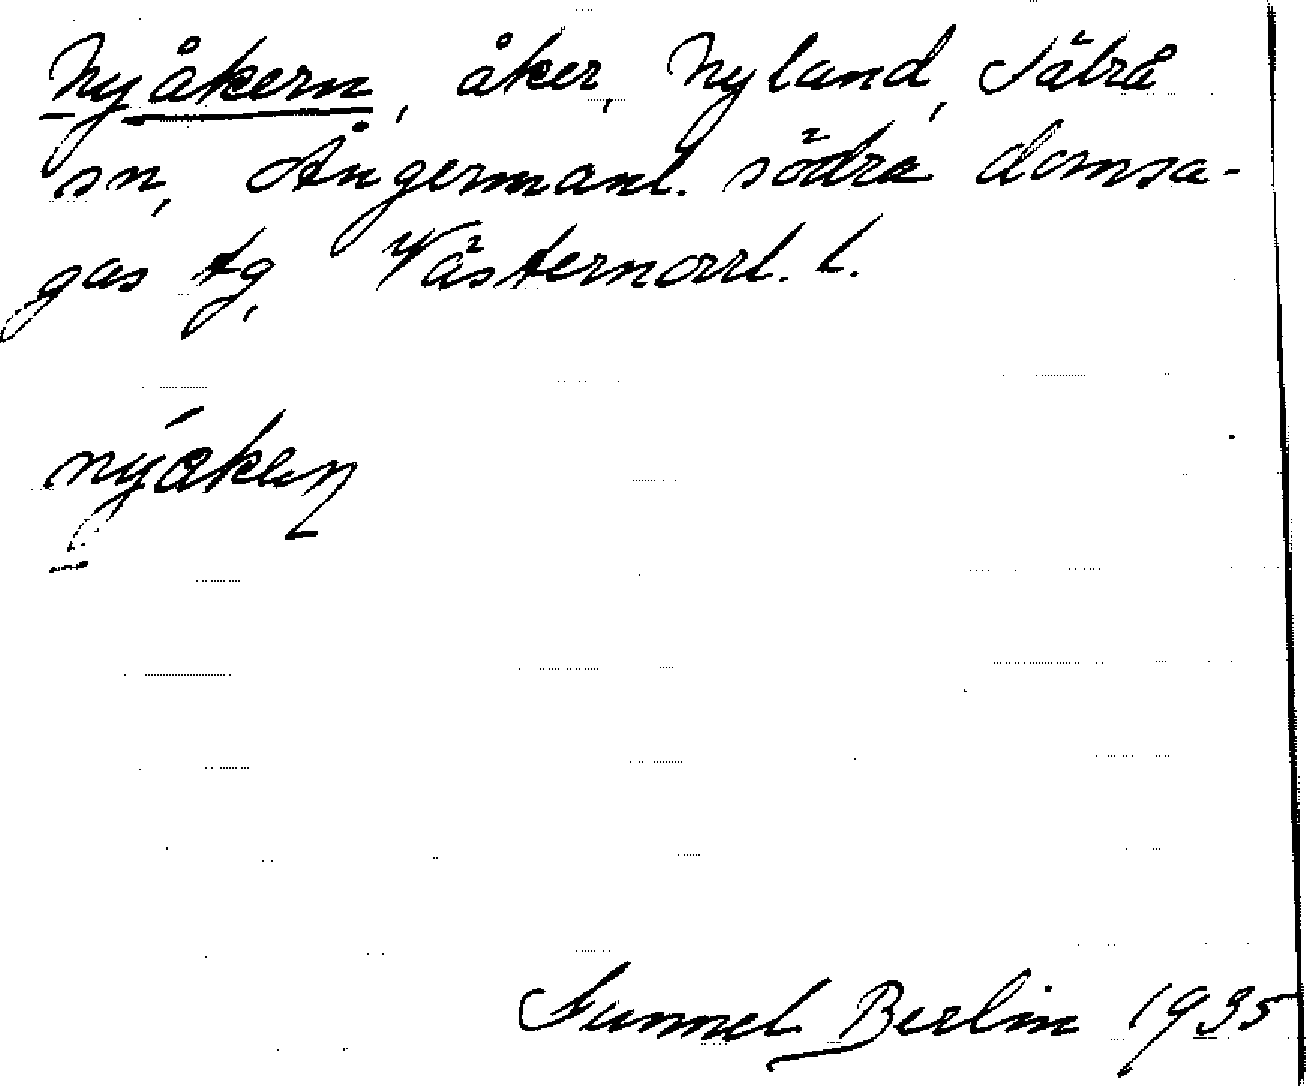 Nyåkern, åker, Nyland, Säbrå
sn, Ångermanl. södra domsa-
gas tg, Västernorrl. l.
Gunnel Berlin 1935